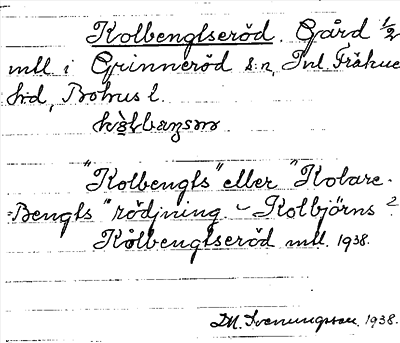 Kolbengtseröd. Gård 1/2
mtl i Grinneröd s:n, Inl. Fräkne
h:d, Bohus l.
"Kolbengts" eller "Kolare-
=Bengts" rödjning. - Kolbjörns?
Kolbengtseröd mtl. 1938.
D.M. Svenungsson. 1938.